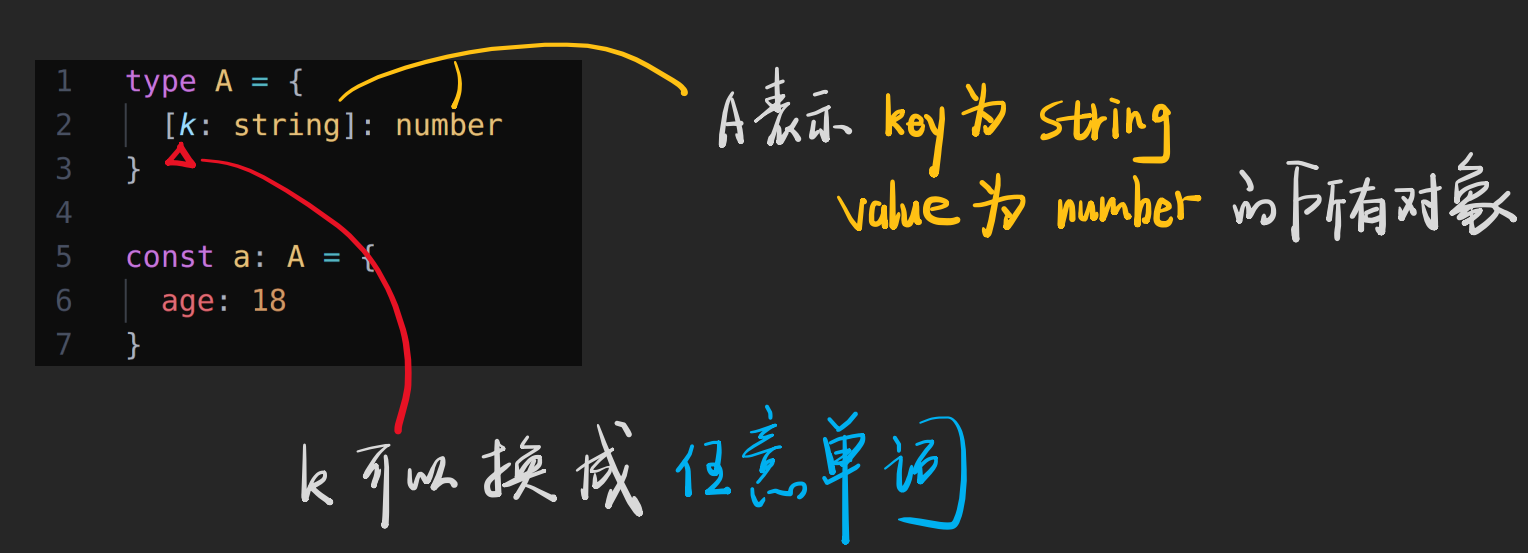 1 type A = {
2 [k: string]: number
3 }
4
5 const a: A = {
6 age: 18
7 }
A表示 key为 string
value为 number 的所有对象
k可以换成任意单词